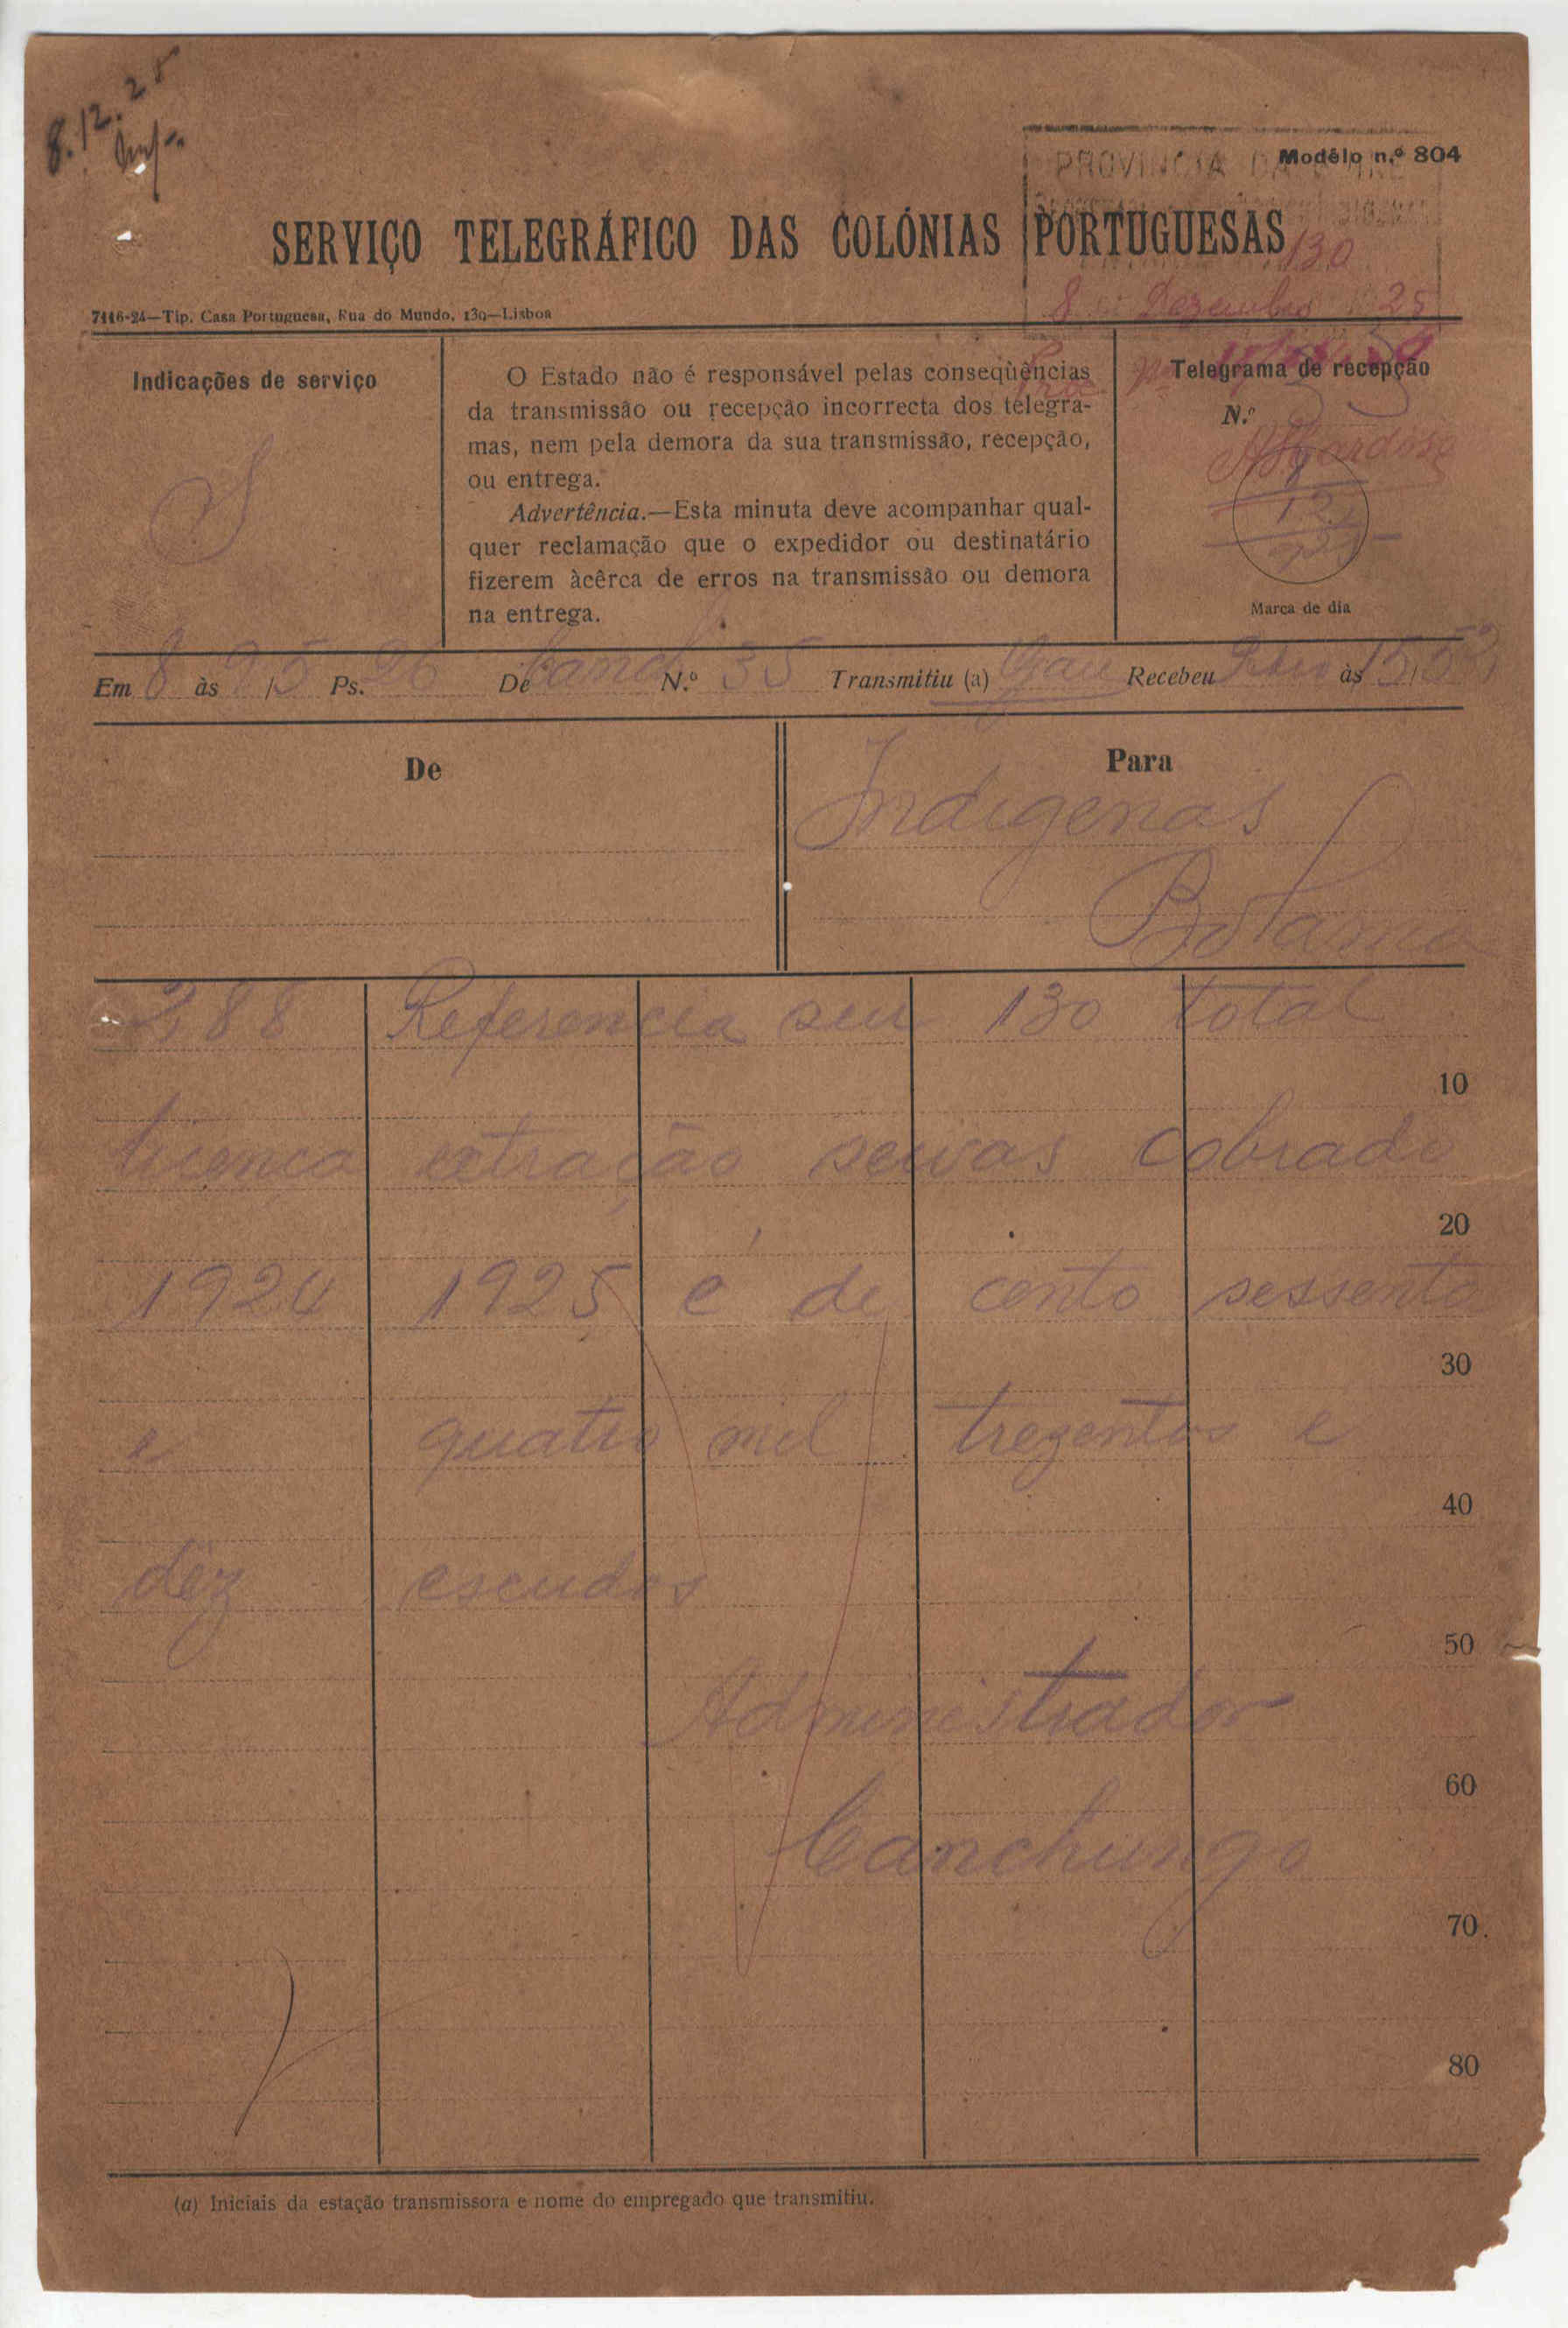 8.12.25
Modêlo n.º 804
PROVINCIA DA
SERVIÇO TELEGRÁFICO DAS COLÓNIAS PORTUGUESAS
130
8 Dezembro 25
7116-24—Tip. Casa Portuguesa, Rua do Mundo, 139—Lisboa
Indicações de serviço
S
O Estado não é responsável pelas conseqùências
da transmissão ou recepção incorrecta dos telegra-
mas, nem pela demora da sua transmissão, recepção,
ou entrega.
Advertência.—Esta minuta deve acompanhar qual-
quer reclamação que o expedidor ou destinatário
fizerem àcêrca de erros na transmissão ou demora
na entrega.
Telegrama de recepção
N.º
Cardoso
8
12
925
Marca de dia
Em 8 às 15 Ps. 26 De Canch N.º 35 Transmitiu (a) Recebeu às 15,52
De
Para
Indigenas
Bolama
288 Referencia seu 130 total
10
licença extração seivas cobrado
20
1924 1925 é de cento sessenta
30
e quatro mil trezentos e
40
dez escudos
50
Administrador
60
Canchungo
70
80
(a) Iniciais da estação transmissora e nome do empregado que transmitiu.